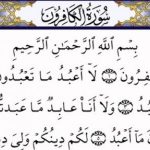 سُورَةُ الكَافِرُونَ
بِسْمِ اللَّهِ الرَّحْمَٰنِ الرَّحِيمِ
فِرُونَ ۝ لَا أَعْبُدُ مَا تَعْبُدُو
بُدُ ۝ وَلَا أَنَا عَابِدٌ مَّا عَبَدتُّ
نَ مَا أَعْبُدُ ۝ لَكُمْ دِينُكُمْ وَلِيَ دِي